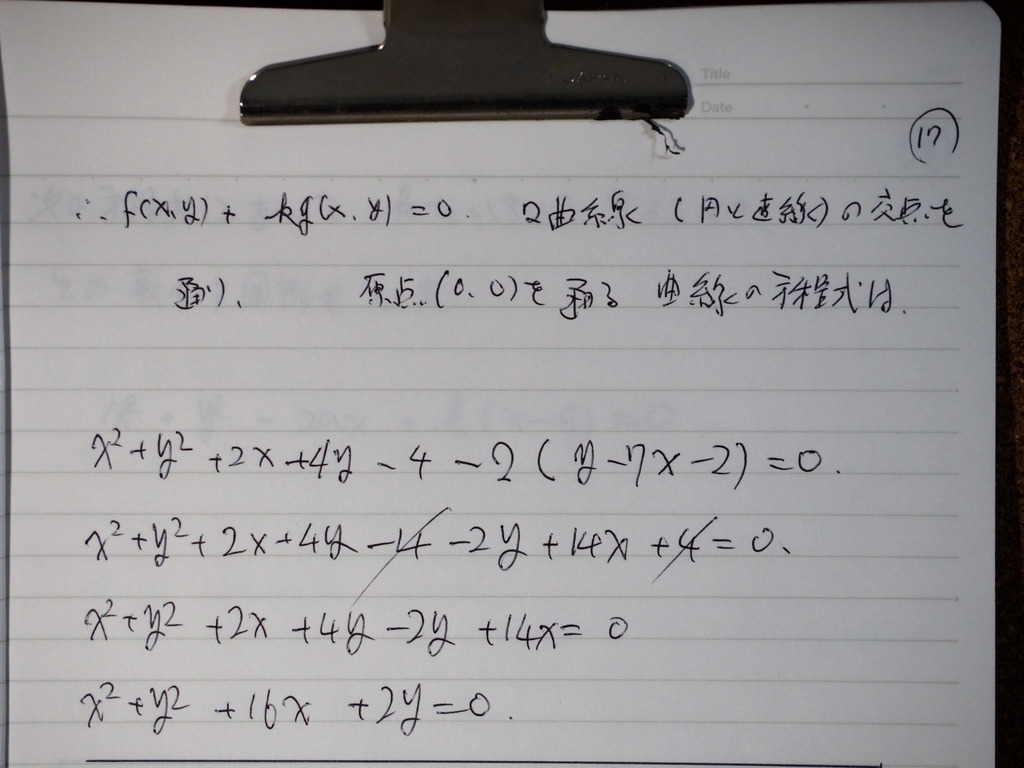 JAPAN
Title
Date
⑰
∴ f(x,y) + kg(x,y) = 0. 2曲線 (円と直線)の交点を
通り、 原点(0,0)を通る 曲線の方程式は、
x²+y²+2x+4y-4-2(y-7x-2)=0.
x²+y²+2x+4y-4-2y+14x+4=0、
x²+y²+2x+4y-2y+14x=0
x²+y²+16x+2y=0.